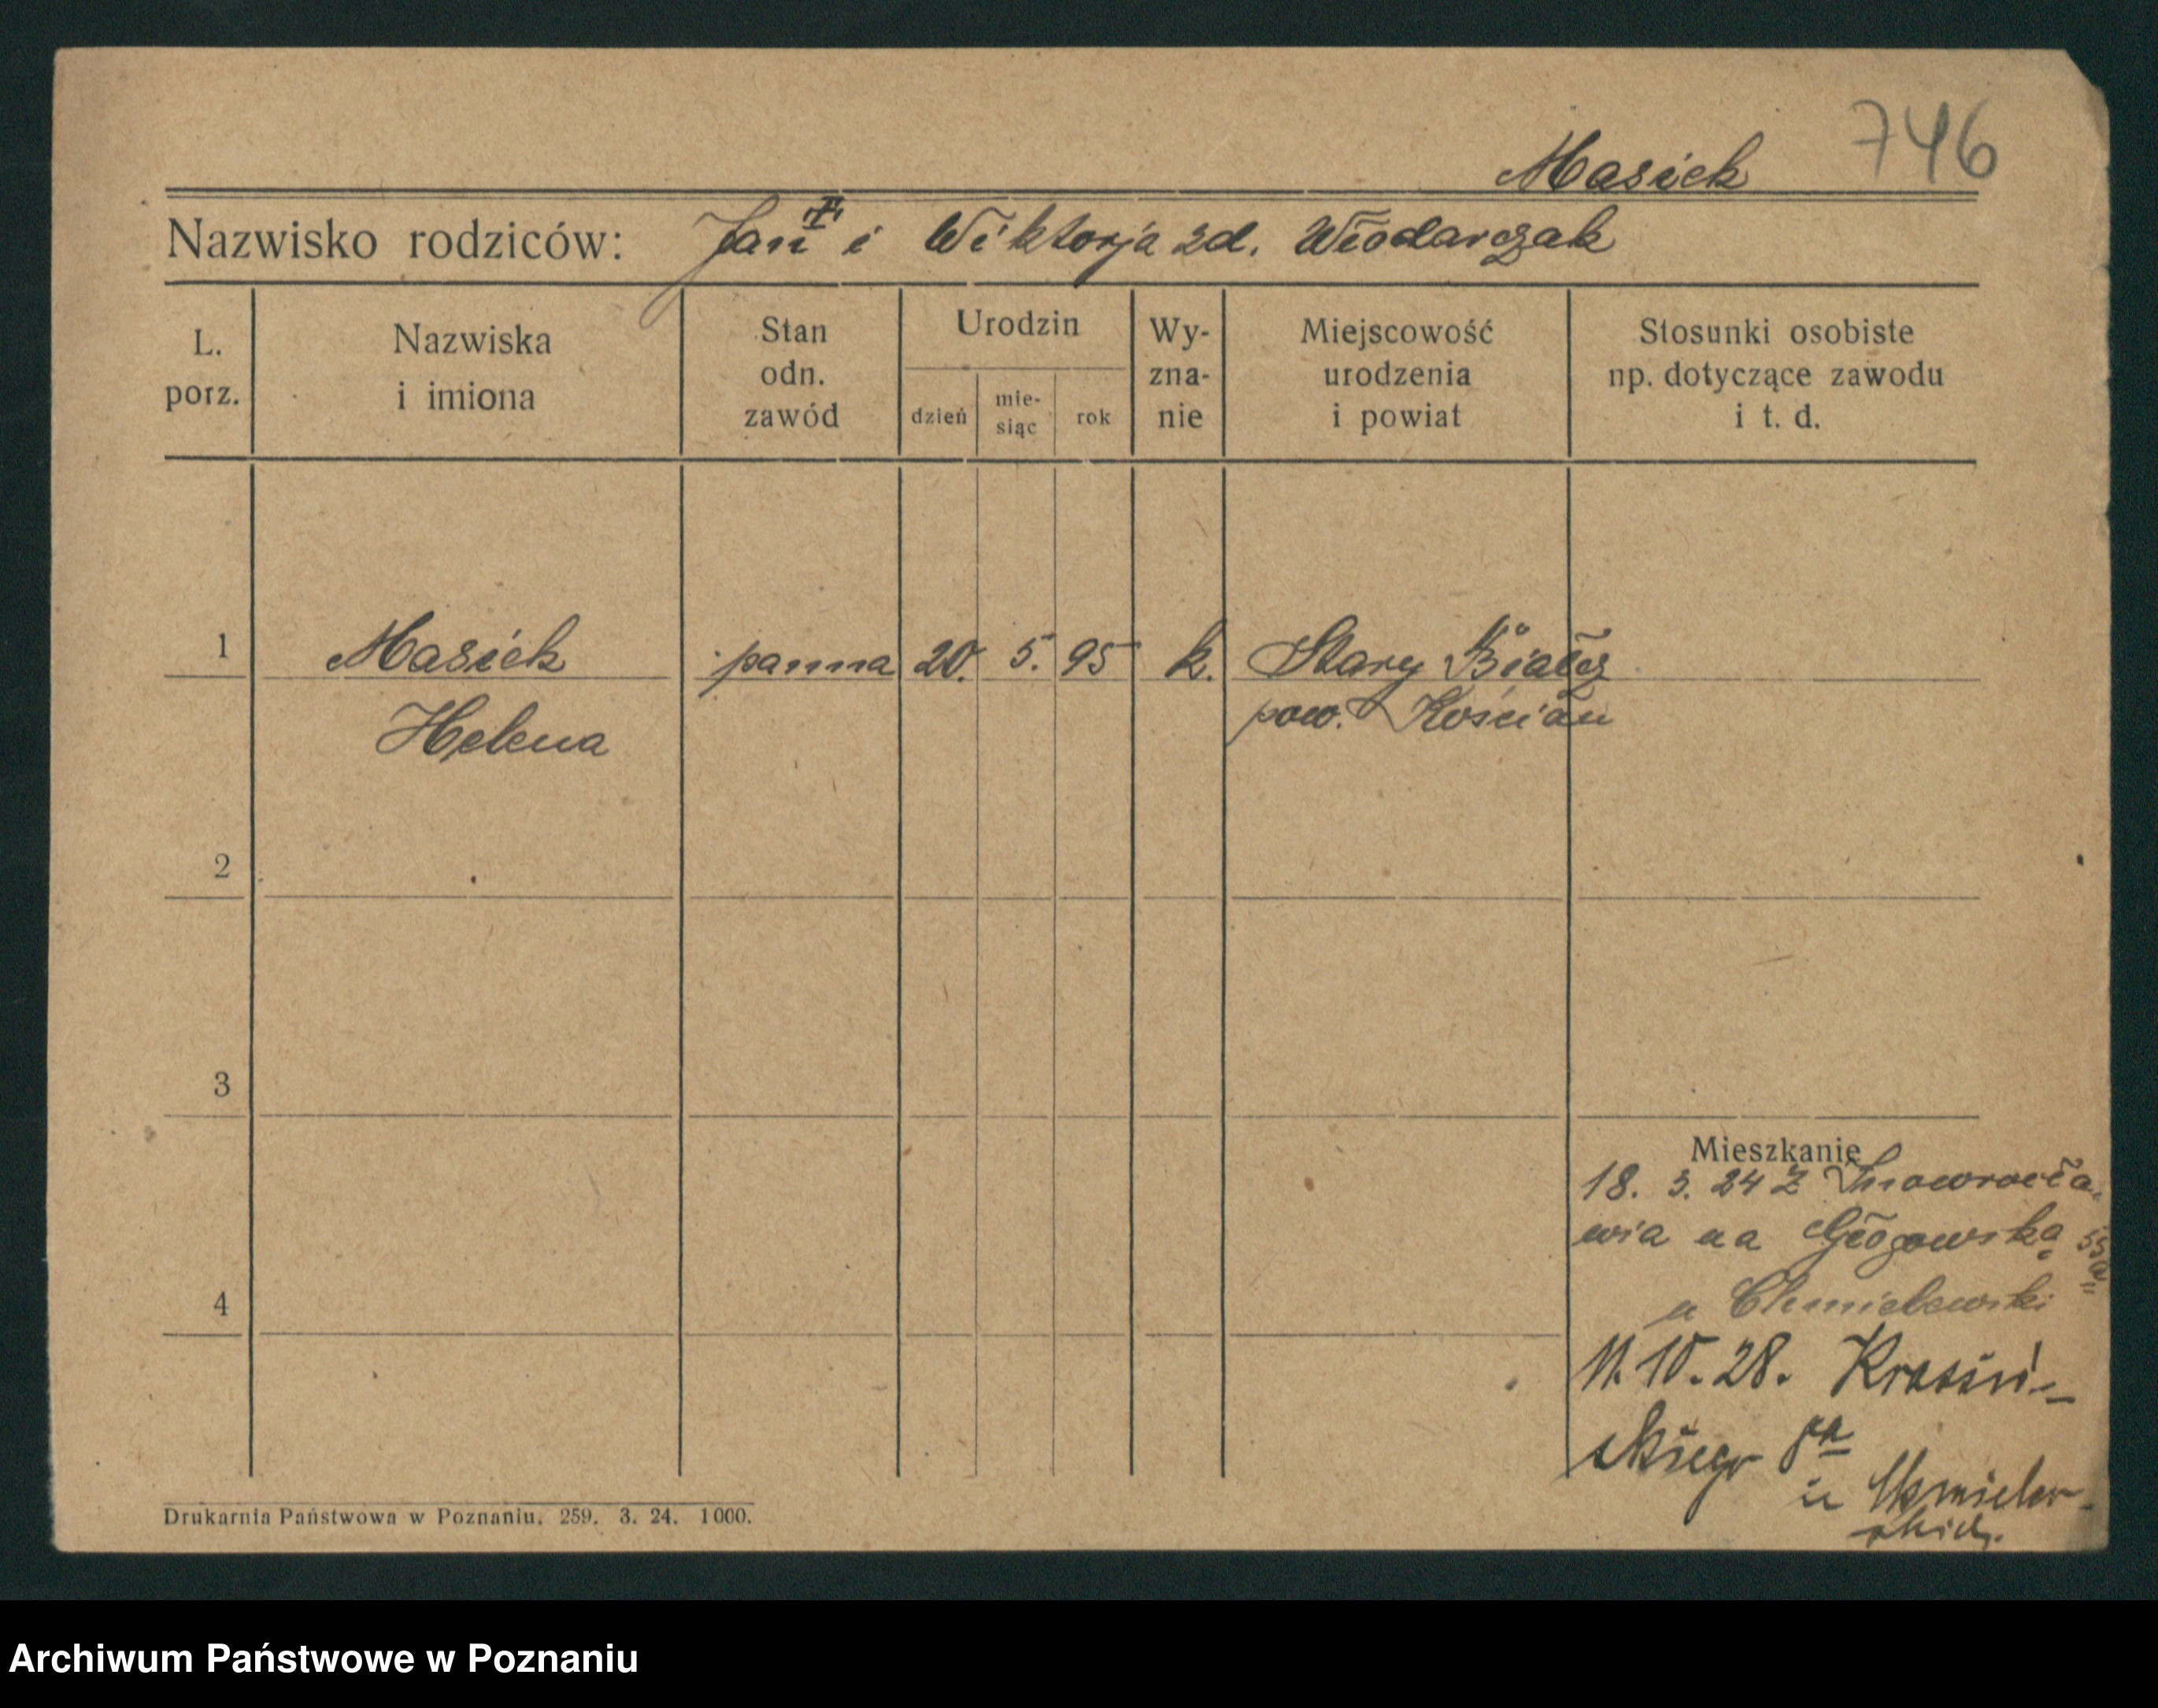 746
Masiek
Nazwisko rodziców: Jan † i Wiktorja zd. Włodarczak
L. porz.
Nazwiska i imiona
Stan odn. zawód
Urodzin
dzień
mie- siąc
rok
Wy- zna- nie
Miejscowość urodzenia i powiat
Stosunki osobiste np. dotyczące zawodu i t. d.
1 Masiek panna 20. 5. 95 k. Stary Białcz
Helena pow. Kościan
2
3
4
Mieszkanie
18. 3. 24 z Inowrocła-
wia na Głogowska
u Chmielewski
11.10.28. Krasiń-
skiego
u Chmielew-
skich.
Drukarnia Państwowa w Poznaniu. 259. 3. 24. 1000.
Archiwum Państwowe w Poznaniu